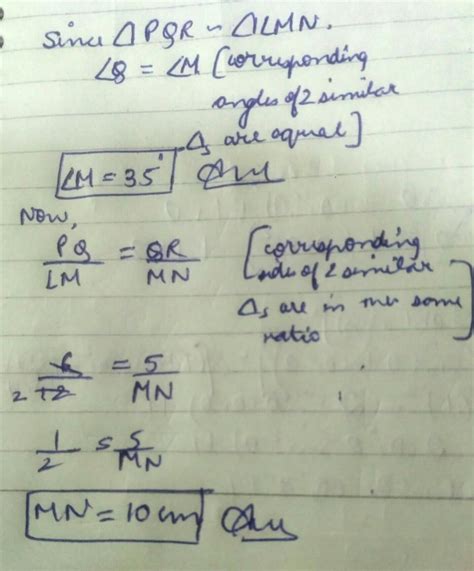 Since △PQR ~ △LMN.
∠Q = ∠M [corresponding
angles of 2 similar
△s are equal]
∠M = 35° Ans
Now,
PQ/LM = QR/MN [corresponding
sides of 2 similar
△s are in the same
ratio]
6/12 = 5/MN
2
1/2 = 5/MN
MN = 10 cm Ans